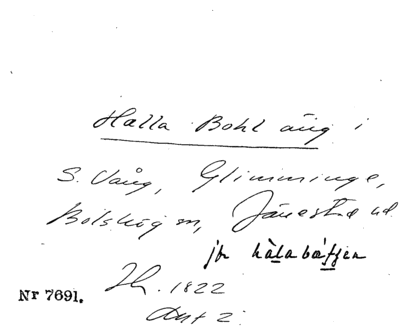 Halla Bohl äng i
S. Vång, Glimminge,
Bolshög m, Järrestad hd
jfr hàlabácken
Nr 7691. Sk. 1822
Akt 2